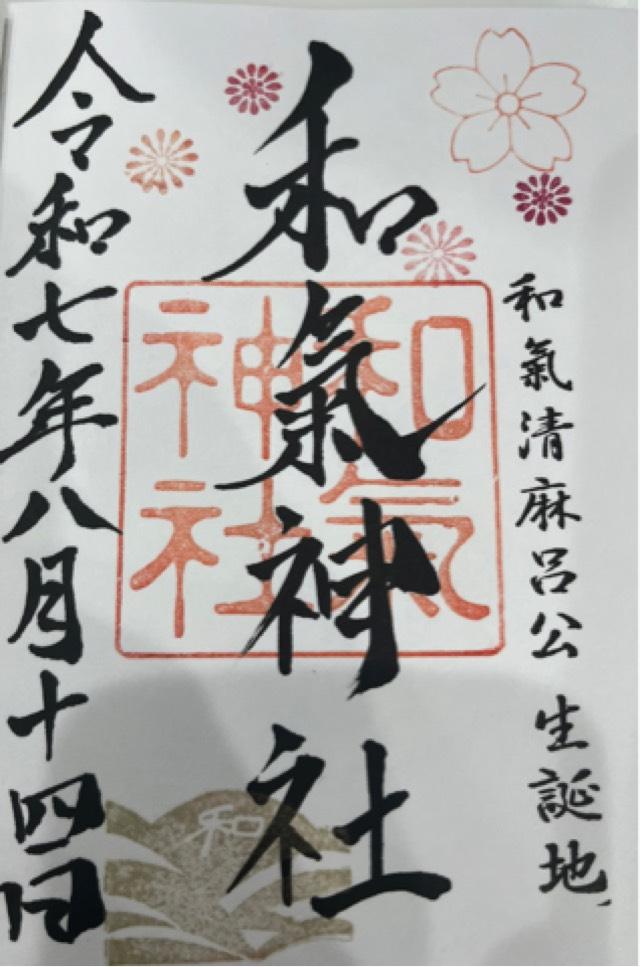 和氣清麻呂公 生誕地
和氣神社
和氣
神社
令和七年八月十四日
和